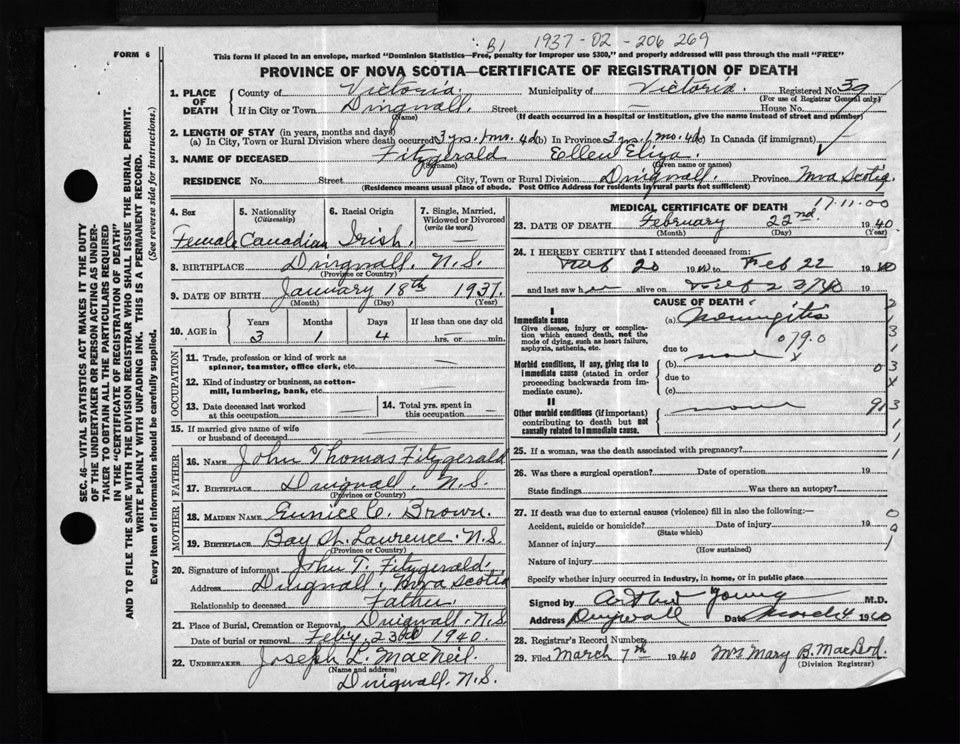 B1 1937-02-206269
FORM 6
This form if placed in an envelope, marked "Dominion Statistics—Free, penalty for improper use $300," and properly addressed will pass through the mail "FREE"
PROVINCE OF NOVA SCOTIA—CERTIFICATE OF REGISTRATION OF DEATH
SEC. 46—VITAL STATISTICS ACT MAKES IT THE DUTY
OF THE UNDERTAKER OR PERSON ACTING AS UNDER-
TAKER TO OBTAIN ALL THE PARTICULARS REQUIRED
IN THE "CERTIFICATE OF REGISTRATION OF DEATH"
AND TO FILE THE SAME WITH THE DIVISION REGISTRAR WHO SHALL ISSUE THE BURIAL PERMIT.
WRITE PLAINLY WITH UNFADING INK. THIS IS A PERMANENT RECORD.
Every item of information should be carefully supplied. (See reverse side for instructions.)
1. PLACE OF DEATH
County of Victoria. Municipality of Victoria. Registered No. 39
(For use of Registrar General only)
If in City or Town Dingwall. Street — House No.
(Name) (If death occurred in a hospital or institution, give the name instead of street and number)
2. LENGTH OF STAY (in years, months and days)
(a) In City, Town or Rural Division where death occurred 3 yrs. 1 mo. 4d (b) In Province 3 yrs. 1 mo. 4d (c) In Canada (if immigrant)
3. NAME OF DECEASED Fitzgerald Eollen Eliza.
(Given name or names)
RESIDENCE No. Street City, Town or Rural Division Dingwall. Province Nova Scotia.
(Residence means usual place of abode. Post Office Address for residents in rural parts not sufficient)
4. Sex 5. Nationality 6. Racial Origin 7. Single, Married,
(Citizenship) Widowed or Divorced
(write the word)
Female Canadian Irish. —
8. BIRTHPLACE Dingwall. N.S.
(Province or Country)
9. DATE OF BIRTH January 18th 1937.
(Month) (Day) (Year)
10. AGE in Years Months Days If less than one day old
3 1 4 hrs. or min.
OCCUPATION
11. Trade, profession or kind of work as
spinner, teamster, office clerk, etc. —
12. Kind of industry or business, as cotton-
mill, lumbering, bank, etc. —
13. Date deceased last worked
at this occupation —
14. Total yrs. spent in
this occupation —
15. If married give name of wife
or husband of deceased —
FATHER
16. NAME John Thomas Fitzgerald
17. BIRTHPLACE Dingwall. N.S.
(Province or Country)
MOTHER
18. MAIDEN NAME Eunice C. Brown.
19. BIRTHPLACE Bay St. Lawrence. N.S.
(Province or Country)
20. Signature of informant John T. Fitzgerald.
Address Dingwall. Nova Scotia
Relationship to deceased Father.
21. Place of Burial, Cremation or Removal Dingwall N.S.
Date of burial or removal Feby. 23rd 1940.
22. UNDERTAKER Joseph L. MacNeil.
(Name and address)
Dingwall. N.S.
MEDICAL CERTIFICATE OF DEATH 17.11.00
23. DATE OF DEATH February 22nd. 1940
(Month) (Day) (Year)
24. I HEREBY CERTIFY that I attended deceased from:
Feb 20 1940 to Feb 22 1940
and last saw h er alive on 19
CAUSE OF DEATH
I
Immediate cause
Give disease, injury or complica-
tion which caused death, not the
mode of dying, such as heart failure,
asphyxia, asthenia, etc.
(a) Meningitis
079.0
due to
none x
Morbid conditions, if any, giving rise to
immediate cause (stated in order
proceeding backwards from im-
mediate cause).
(b)
due to
(c)
II
Other morbid conditions (if important)
contributing to death but not
causally related to immediate cause.
none
25. If a woman, was the death associated with pregnancy?
26. Was there a surgical operation? Date of operation 19
State findings Was there an autopsy?
27. If death was due to external causes (violence) fill in also the following:—
Accident, suicide or homicide? Date of injury 19
(State which)
Manner of injury
(How sustained)
Nature of injury
Specify whether injury occurred in industry, in home, or in public place
Signed by Arthur Young M.D.
Address Dingwall Date March 4 1940
28. Registrar's Record Number
29. Filed March 7th 1940 Mrs Mary B. MacLeod.
(Division Registrar)